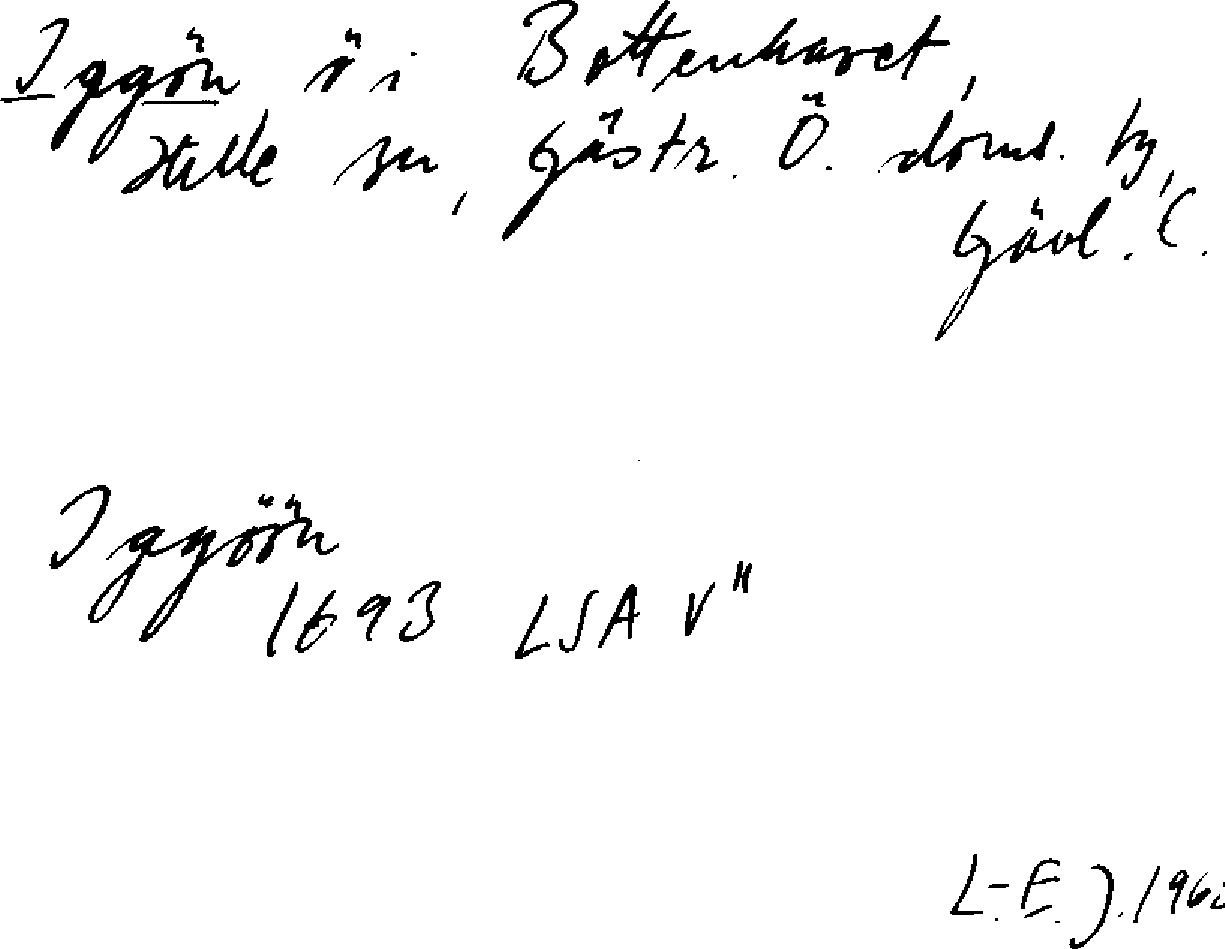 Iggön ö i Bottenhavet,
Hille sn, Gästr. Ö. doms. tg,
Gävl.
Iggöön
1693 LSA V"
L-E. J. 196